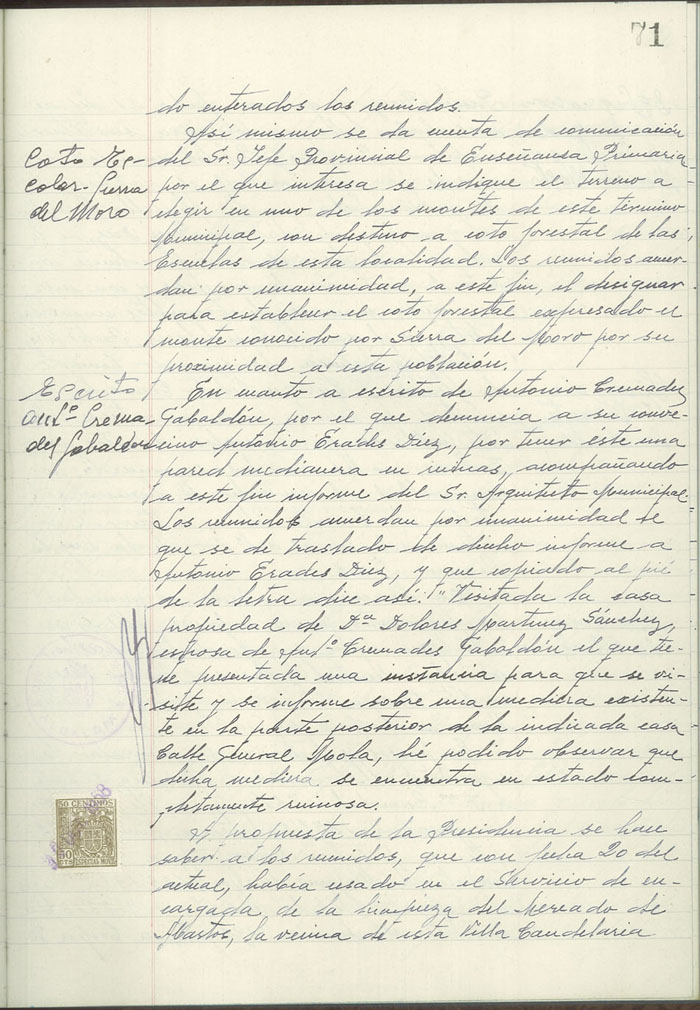 71
do enterados los reunidos.
Así mismo se da cuenta de comunicación
Coto Es-
colar-Sierra
del Moro
del Sr. Jefe Provincial de Enseñansa Primaria
por el que interesa se indique el terreno a
elegir en uno de los montes de este término
Municipal, con destino a coto forestal de las
Escuelas de esta localidad. Los reunidos acuer-
dan por unanimidad, a este fin, el designar
para establecer el coto forestal expresado el
monte conocido por Sierra del Moro por su
proximidad a esta población.
Escrito
Antº Crema-
des Gabaldón
En cuanto a escrito de Antonio Cremades
Gabaldón, por el que denuncia a su conve-
cino Antonio Erades Díez, por tener éste una
pared medianera en ruinas, acompañando
a este fin informe del Sr. Arquitecto Municipal.
Los reunidos acuerdan por unanimidad de
que se de traslado de dicho informe a
Antonio Erades Diez, y que copiado al pié
de la letra dice así: "Visitada la casa
propiedad de Dª Dolores Martinez Sánchez,
esposa de Antº Cremades Gabaldón el que tie-
ne presentada una instancia para que se vi-
site y se informe sobre una mediera existen-
te en la parte posterior de la indicada casa
Calle General Mola, hé podido observar que
dicha mediera se encuentra en estado com-
pletamente ruinosa.
A propuesta de la Presidencia se hace
saber a los reunidos, que con fecha 20 del
actual, había cesado en el Servicio de en-
cargada de la limpieza del Mercado de
Abastos, la vecina de esta Villa Candelaria
50 CENTIMOS
50
CTS ESPECIAL MOVIL